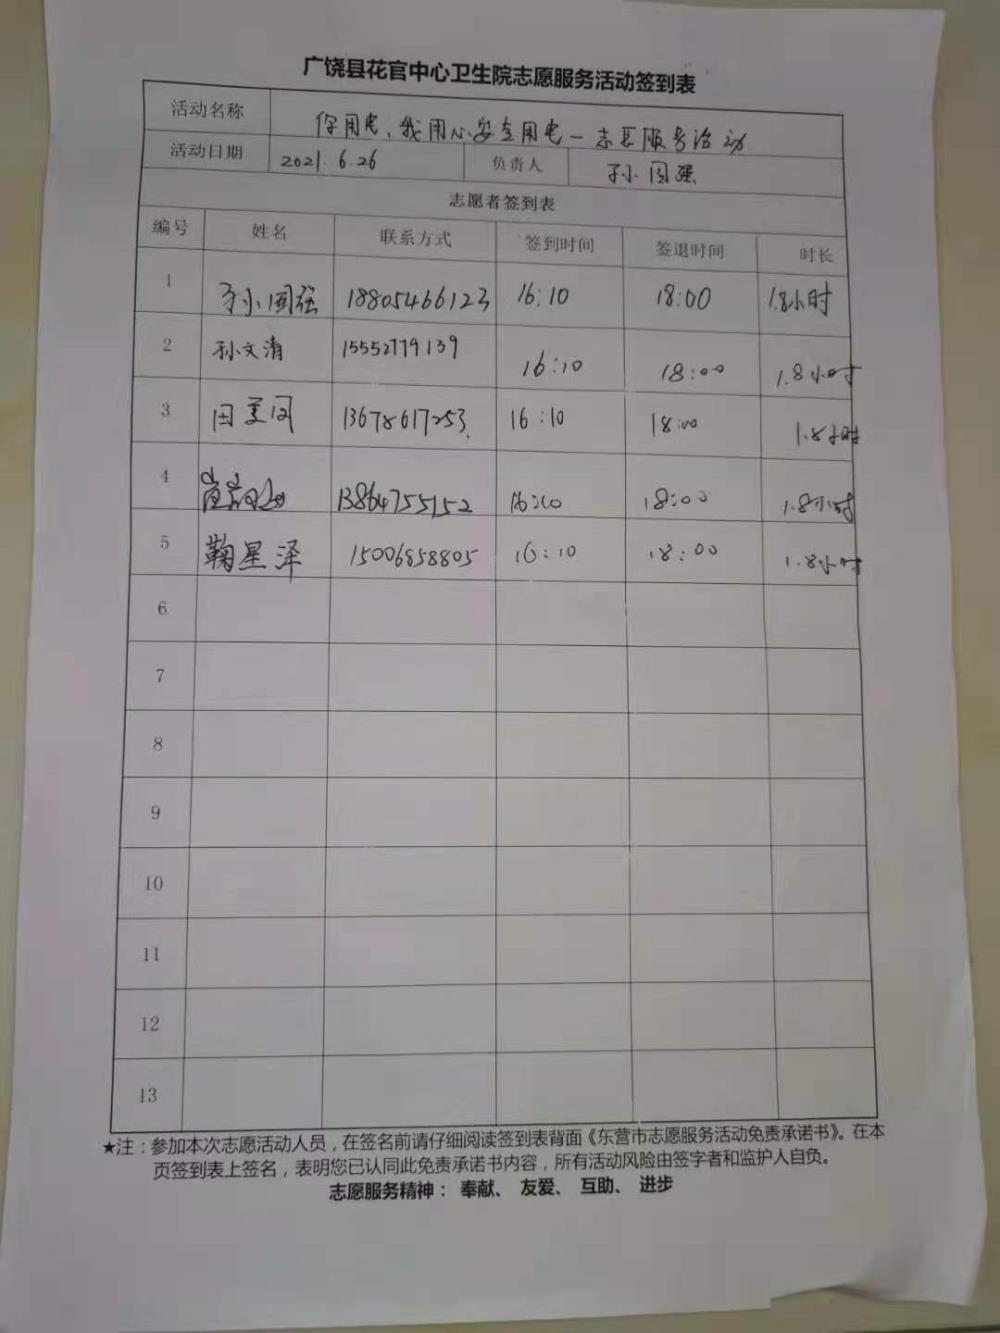 广饶县花官中心卫生院志愿服务活动签到表
活动名称 你用电，我用心安全用电—志愿服务活动
活动日期 2021.6.26 负责人 孙国强
志愿者签到表
编号 姓名 联系方式 签到时间 签退时间 时长
1 孙国强 18805466123 16:10 18:00 1.8小时
2 孙文清 15552779139 16:10 18:00 1.8小时
3 田美同 13678617253 16:10 18:00 1.8小时
4 13864755152 16:10 18:00 1.8小时
5 鞠星泽 15006858805 16:10 18:00 1.8小时
6
7
8
9
10
11
12
13
★注：参加本次志愿活动人员，在签名前请仔细阅读签到表背面《东营市志愿服务活动免责承诺书》。在本
页签到表上签名，表明您已认同此免责承诺书内容，所有活动风险由签字者和监护人自负。
志愿服务精神： 奉献、 友爱、 互助、 进步